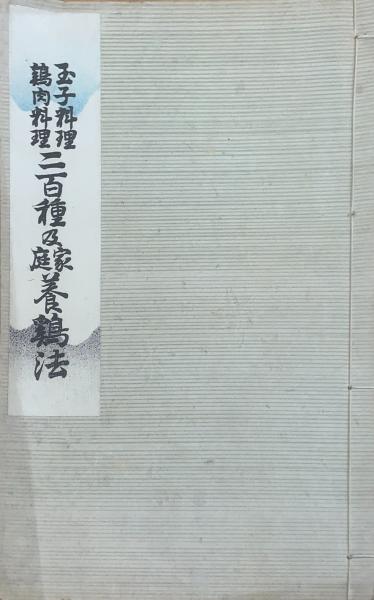 玉子料理
鶏肉料理
二百種及家庭養鶏法